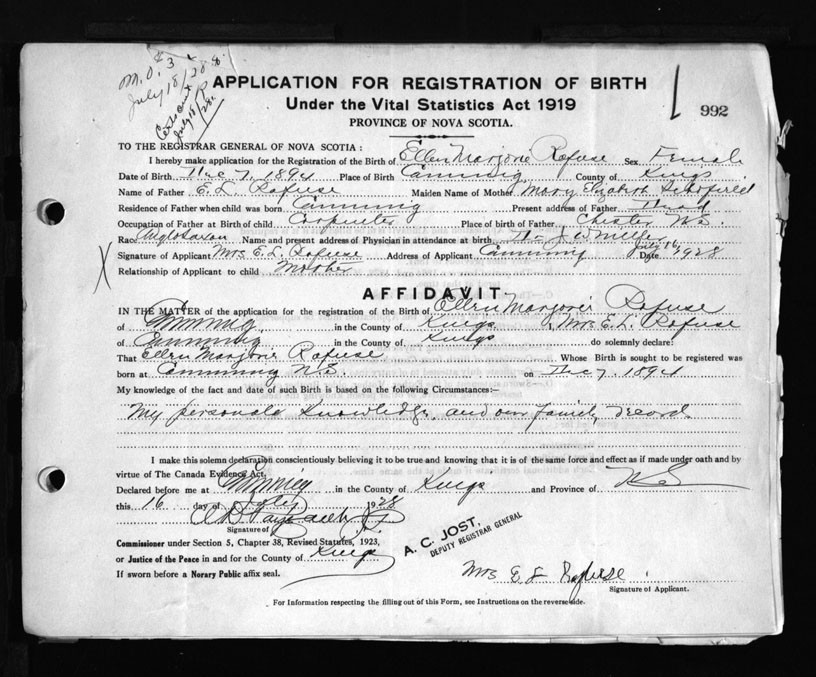 M.O. $3
July 18/28
Cert. sent
July 18/28.
APPLICATION FOR REGISTRATION OF BIRTH
992
Under the Vital Statistics Act 1919
PROVINCE OF NOVA SCOTIA.
TO THE REGISTRAR GENERAL OF NOVA SCOTIA:
I hereby make application for the Registration of the Birth of Ellen Marjorie Rafuse Sex Female
Date of Birth Dec 7, 1894 Place of Birth Canning County of Kings
Name of Father E. L. Rafuse Maiden Name of Mother Mary Elizabeth Schofield
Residence of Father when child was born Canning Present address of Father Dead
Occupation of Father at Birth of child Carpenter Place of birth of Father Chester N.S.
Race Anglo Saxon Name and present address of Physician in attendance at birth J. W Miller
Signature of Applicant Mrs E. L. Rafuse Address of Applicant Canning Date July 16 1928
Relationship of Applicant to child Mother
AFFIDAVIT
IN THE MATTER of the application for the registration of the Birth of Ellen Marjorie Rafuse
of Canning in the County of Kings I, Mrs E. L. Rafuse
of Canning in the County of Kings do solemnly declare:
That Ellen Marjorie Rafuse Whose Birth is sought to be registered was
born at Canning N.S. on Dec 7, 1894
My knowledge of the fact and date of such Birth is based on the following Circumstances:—
My personal Knowledge, and our family record
I make this solemn declaration conscientiously believing it to be true and knowing that it is of the same force and effect as if made under oath and by
virtue of The Canada Evidence Act.
Declared before me at Canning in the County of Kings and Province of N S
this 16 day of July 1928
Signature of
A. C. JOST.
DEPUTY REGISTRAR GENERAL
Commissioner under Section 5, Chapter 38, Revised Statutes, 1923,
or Justice of the Peace in and for the County of Kings
If sworn before a Norary Public affix seal.
Mrs E L Rafuse
Signature of Applicant.
For Information respecting the filling out of this Form, see Instructions on the reverse side.